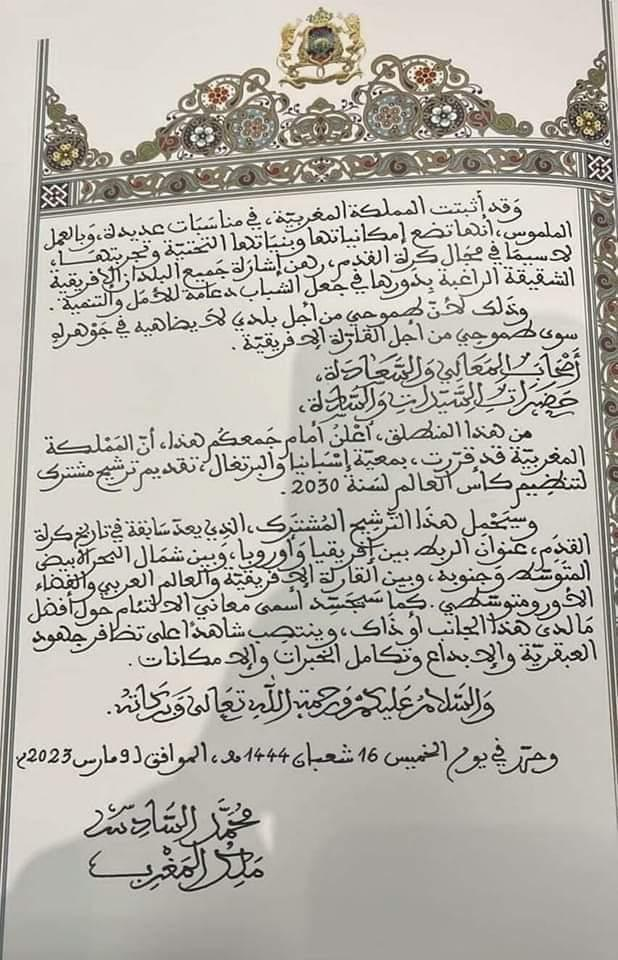 وقد أثبتت المملكة المغربية، في مناسبات عديدة، وبالعمل
الملموس، أنها تضع إمكاناتها وبنياتها التحتية وتجربتها،
لاسيما في مجال كرة القدم، رهن إشارة جميع البلدان الإفريقية
الشقيقة الراغبة بدورها في جعل الشباب دعامة للأمل والتنمية.
وذلك لأن طموحي من أجل بلدي لا يضاهيه في جوهره
سوى طموحي من أجل القارة الإفريقية.
أصحاب المعالي والسعادة،
حضرات السيدات والسادة،
من هذا المنطلق، أعلن أمام جمعكم هذا، أن المملكة
المغربية قد قررت، بمعية إسبانيا والبرتغال، تقديم ترشيح مشترك
لتنظيم كأس العالم لسنة 2030.
وسيحمل هذا الترشيح المشترك، الذي يعد سابقة في تاريخ كرة
القدم، عنوان الربط بين إفريقيا وأوروبا، وبين شمال البحر الأبيض
المتوسط وجنوبه، وبين القارة الإفريقية والعالم العربي والفضاء
الأورومتوسطي. كما سيجسد أسمى معاني الالتئام حول أفضل
ما لدى هذا الجانب أو ذاك، وينتصب شاهدا على تظافر جهود
العبقرية والإبداع وتكامل الخبرات والإمكانات.
والسلام عليكم ورحمة الله تعالى وبركاته.
وحرر في يوم الخميس 16 شعبان 1444 هـ، الموافق لـ 9 مارس 2023م
محمد السادس
ملك المغرب